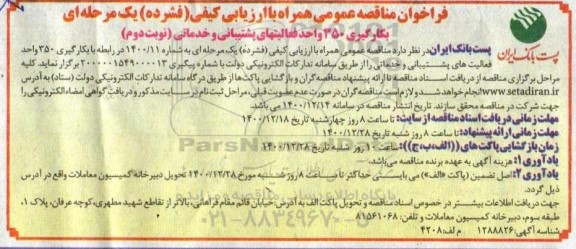 فراخوان مناقصه عمومی همراه با ارزیابی کیفی (فشرده) یک مرحله ای
بکارگیری ۳۵۰ واحد فعالیتهای پشتیبانی و خدماتی (نوبت دوم)
پست بانک ایران
پست بانک ایران در نظر دارد مناقصه عمومی همراه با ارزیابی کیفی (فشرده) یک مرحله ای به شماره ۱۴۰۰/۱۱ در رابطه با بکارگیری ۳۵۰ واحد
فعالیت های پشتیبانی و خدماتی را از طریق سامانه تدارکات الکترونیکی دولت با شماره پیگیری ۲۰۰۰۰۰۱۵۴۹۰۰۰۰۱۳ برگزار نماید. کلیه
مراحل برگزاری مناقصه از دریافت اسناد مناقصه تا ارائه پیشنهاد مناقصه گران و بازگشایی پاکت ها از طریق درگاه سامانه تدارکات الکترونیکی دولت (ستاد) به آدرس
www.setadiran.ir انجام خواهد شد و لازم است مناقصه گران در صورت عدم عضویت قبلی، مراحل ثبت نام در سایت مذکور و دریافت گواهی امضاء الکترونیکی را
جهت شرکت در مناقصه محقق سازند. تاریخ انتشار مناقصه در سامانه ۱۴۰۰/۱۲/۱۴ می باشد.
مهلت زمانی دریافت اسناد مناقصه از سایت: تا ساعت ۸ روز چهارشنبه تاریخ ۱۴۰۰/۱۲/۱۸
مهلت زمانی ارائه پیشنهاد: تا ساعت ۸ روز شنبه تاریخ ۱۴۰۰/۱۲/۲۸
زمان بازگشایی پاکت های ((الف،ب،ج)): ساعت ۱۰ روز شنبه تاریخ ۱۴۰۰/۱۲/۲۸
یادآوری ۱: هزینه آگهی به عهده برنده مناقصه می باشد.
یادآوری ۲: اصل تضمین (پاکت «الف») می بایستی حداکثر تا ساعت ۸ روز شنبه مورخ ۱۴۰۰/۱۲/۲۸ تحویل دبیرخانه کمیسیون معاملات واقع در آدرس
ذیل گردد.
جهت دریافت اطلاعات بیشتر در خصوص اسناد مناقصه و تحویل پاکت الف به آدرس: خیابان قائم مقام فراهانی، بالاتر از تقاطع شهید مطهری، کوچه عرفان، پلاک ۱،
طبقه سوم، دبیرخانه کمیسیون معاملات و تلفن: ۸۱۵۶۱۰۶۸
شناسه آگهی: ۱۲۸۸۸۲۶ م الف: ۴۲۰۸
ParsNamad
۰۲۱-۸۸۳۴۹۶۷۰-۵